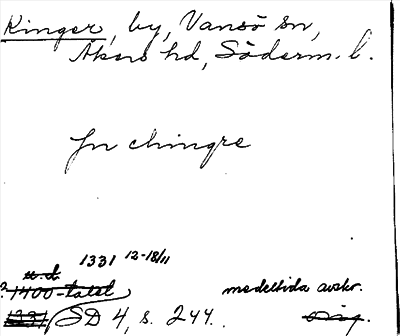 Kinger, by, Vansö sn,
Åkers hd, Söderm. l.
Jn chingre
1331 12-18/11
u.d.
? 1400-talet medeltida avskr.
1331 SD 4, s. 244. Orig.